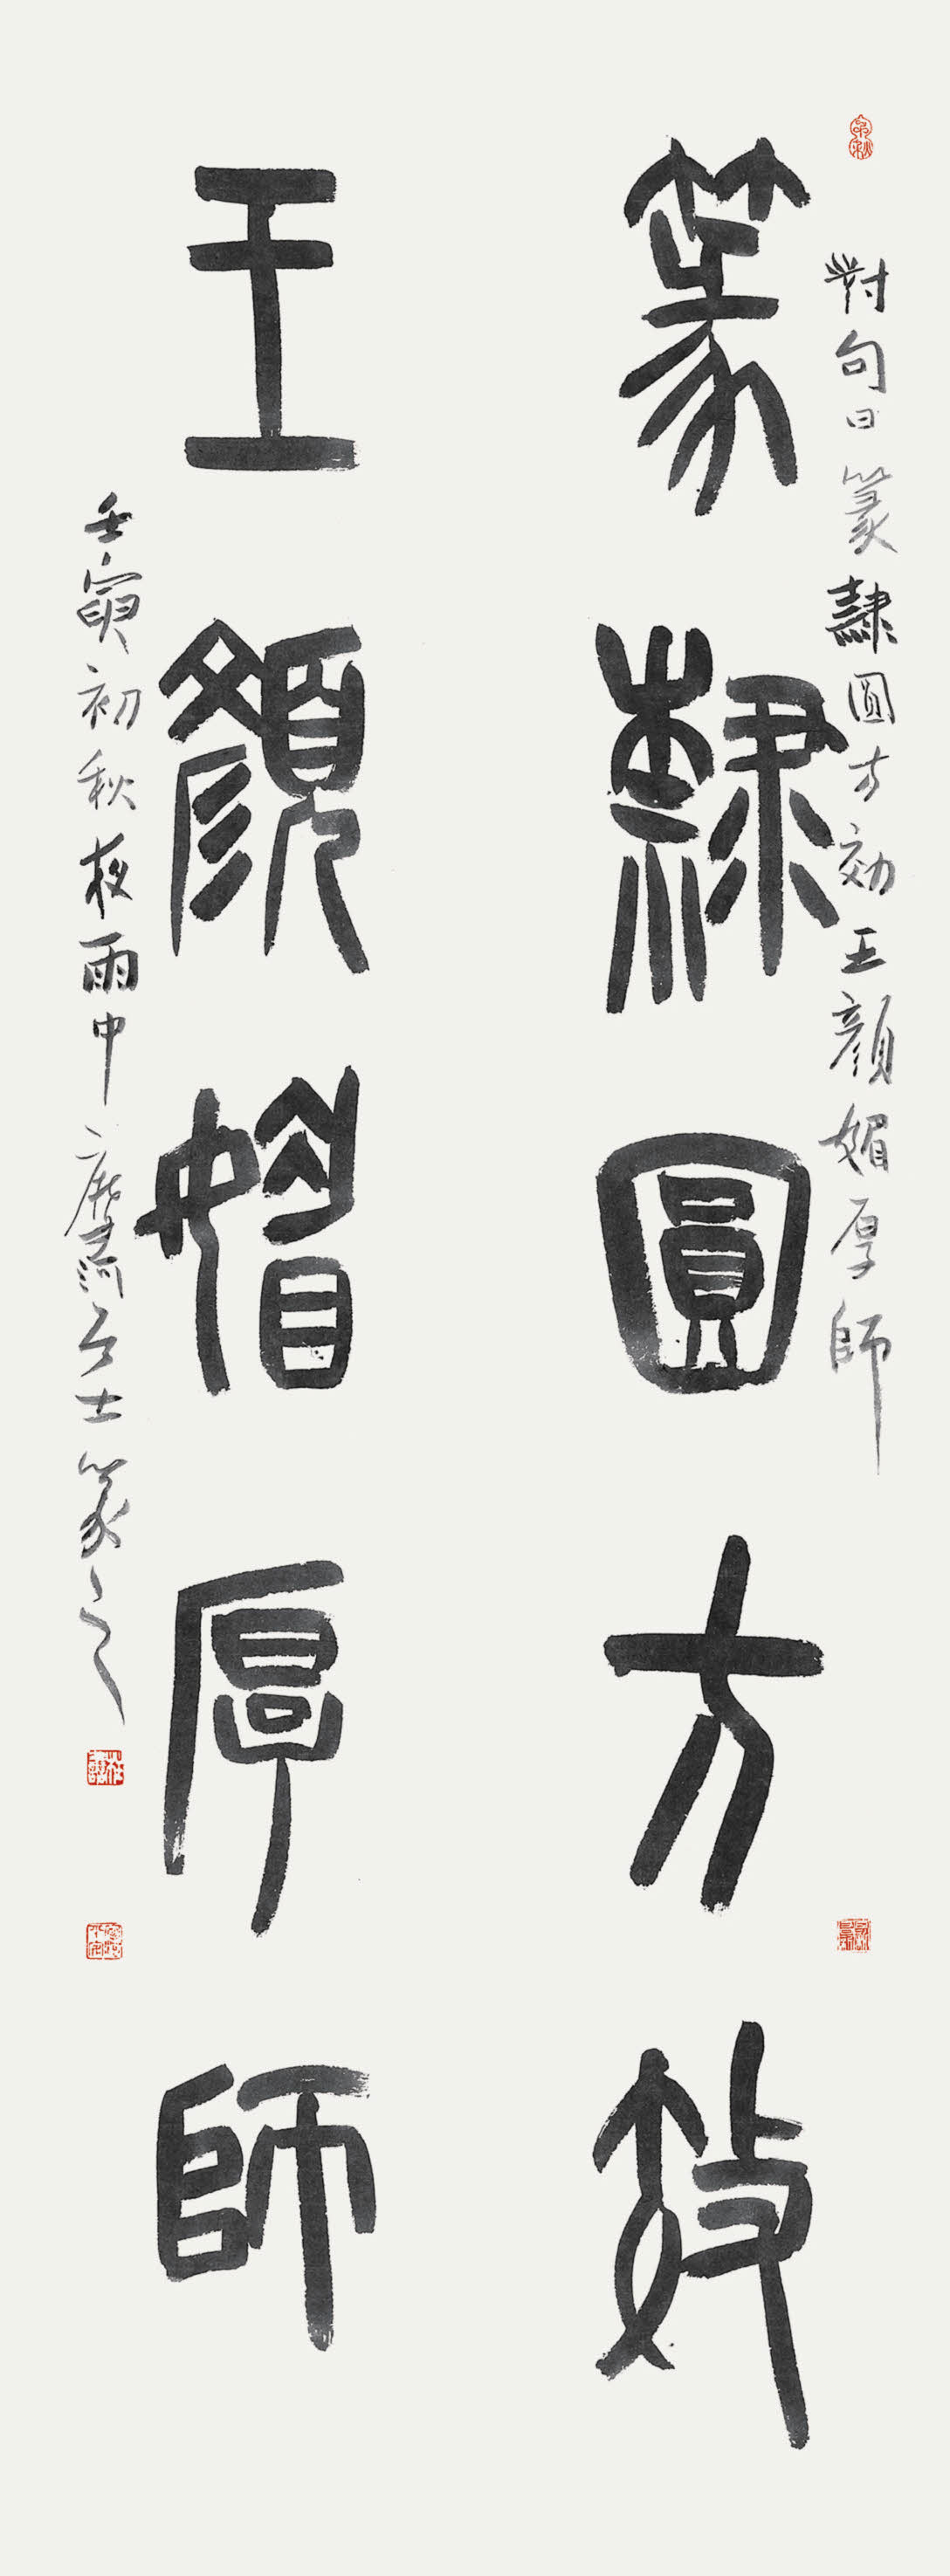 對句曰篆隸圓方効王顏媚厚師
篆隸圓方效
王顏媚厚師
壬寅初秋夜雨中
士篆之